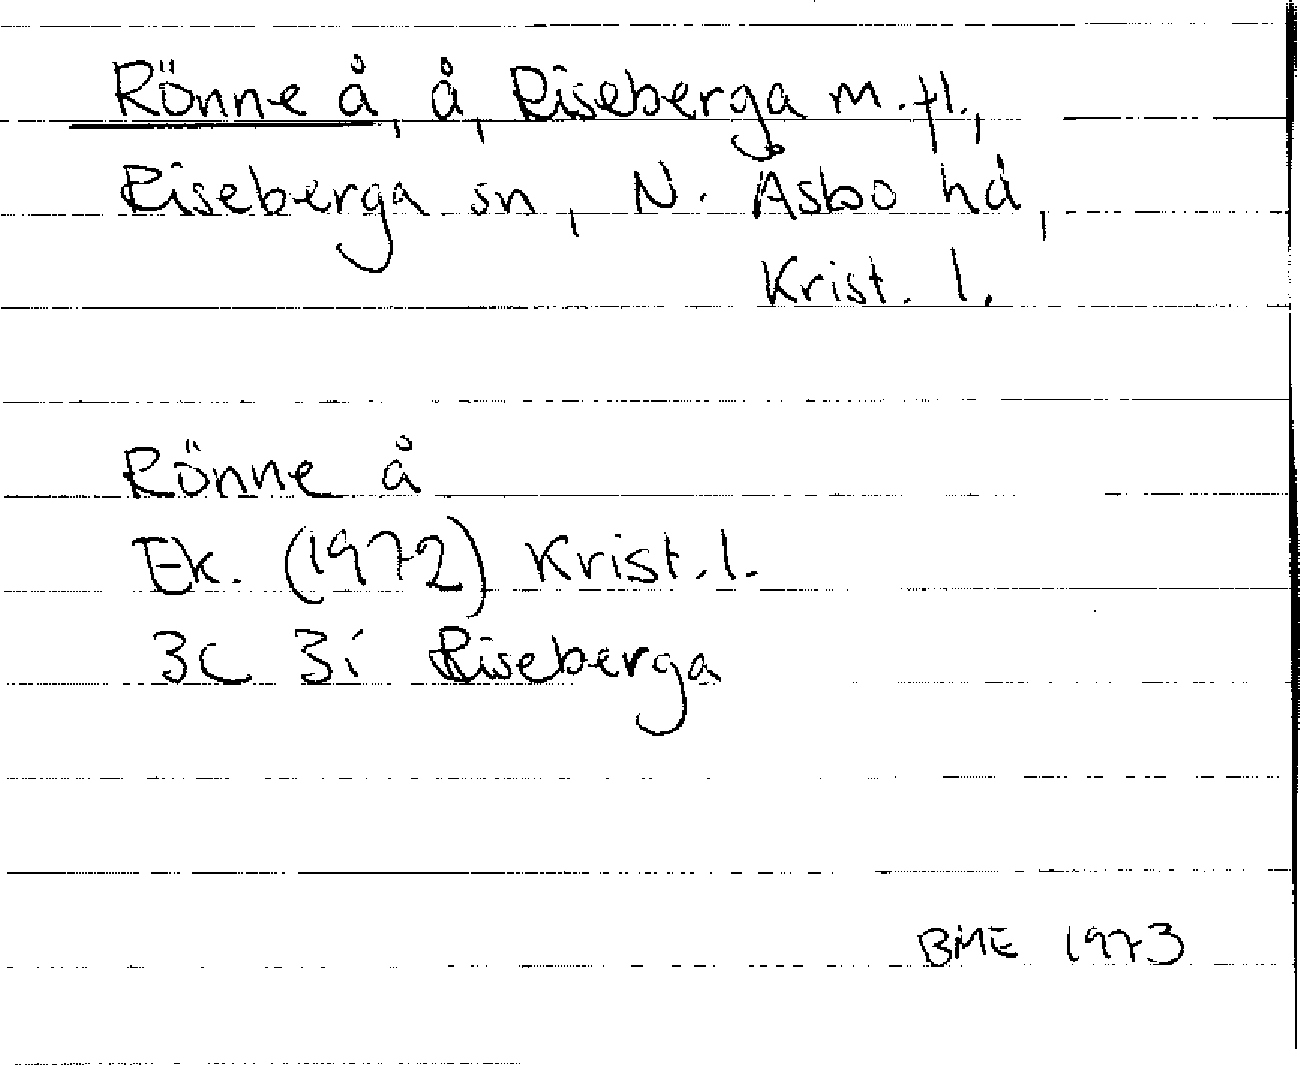 Rönne å, å, Riseberga m.fl.,
Riseberga sn, N. Åsbo hd,
Krist. l.
Rönne å
Ek. (1972) Krist. l.
3C 3i Riseberga
BME 1973